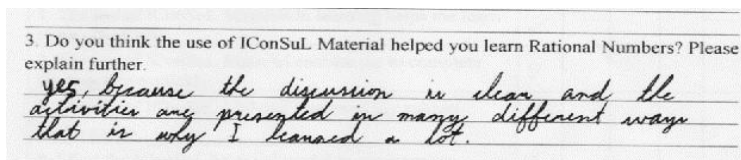 3. Do you think the use of IConSuL Material helped you learn Rational Numbers? Please
explain further.
yes, because the discussion is clear and the
activities are presented in many different ways
that is why I learned a lot.